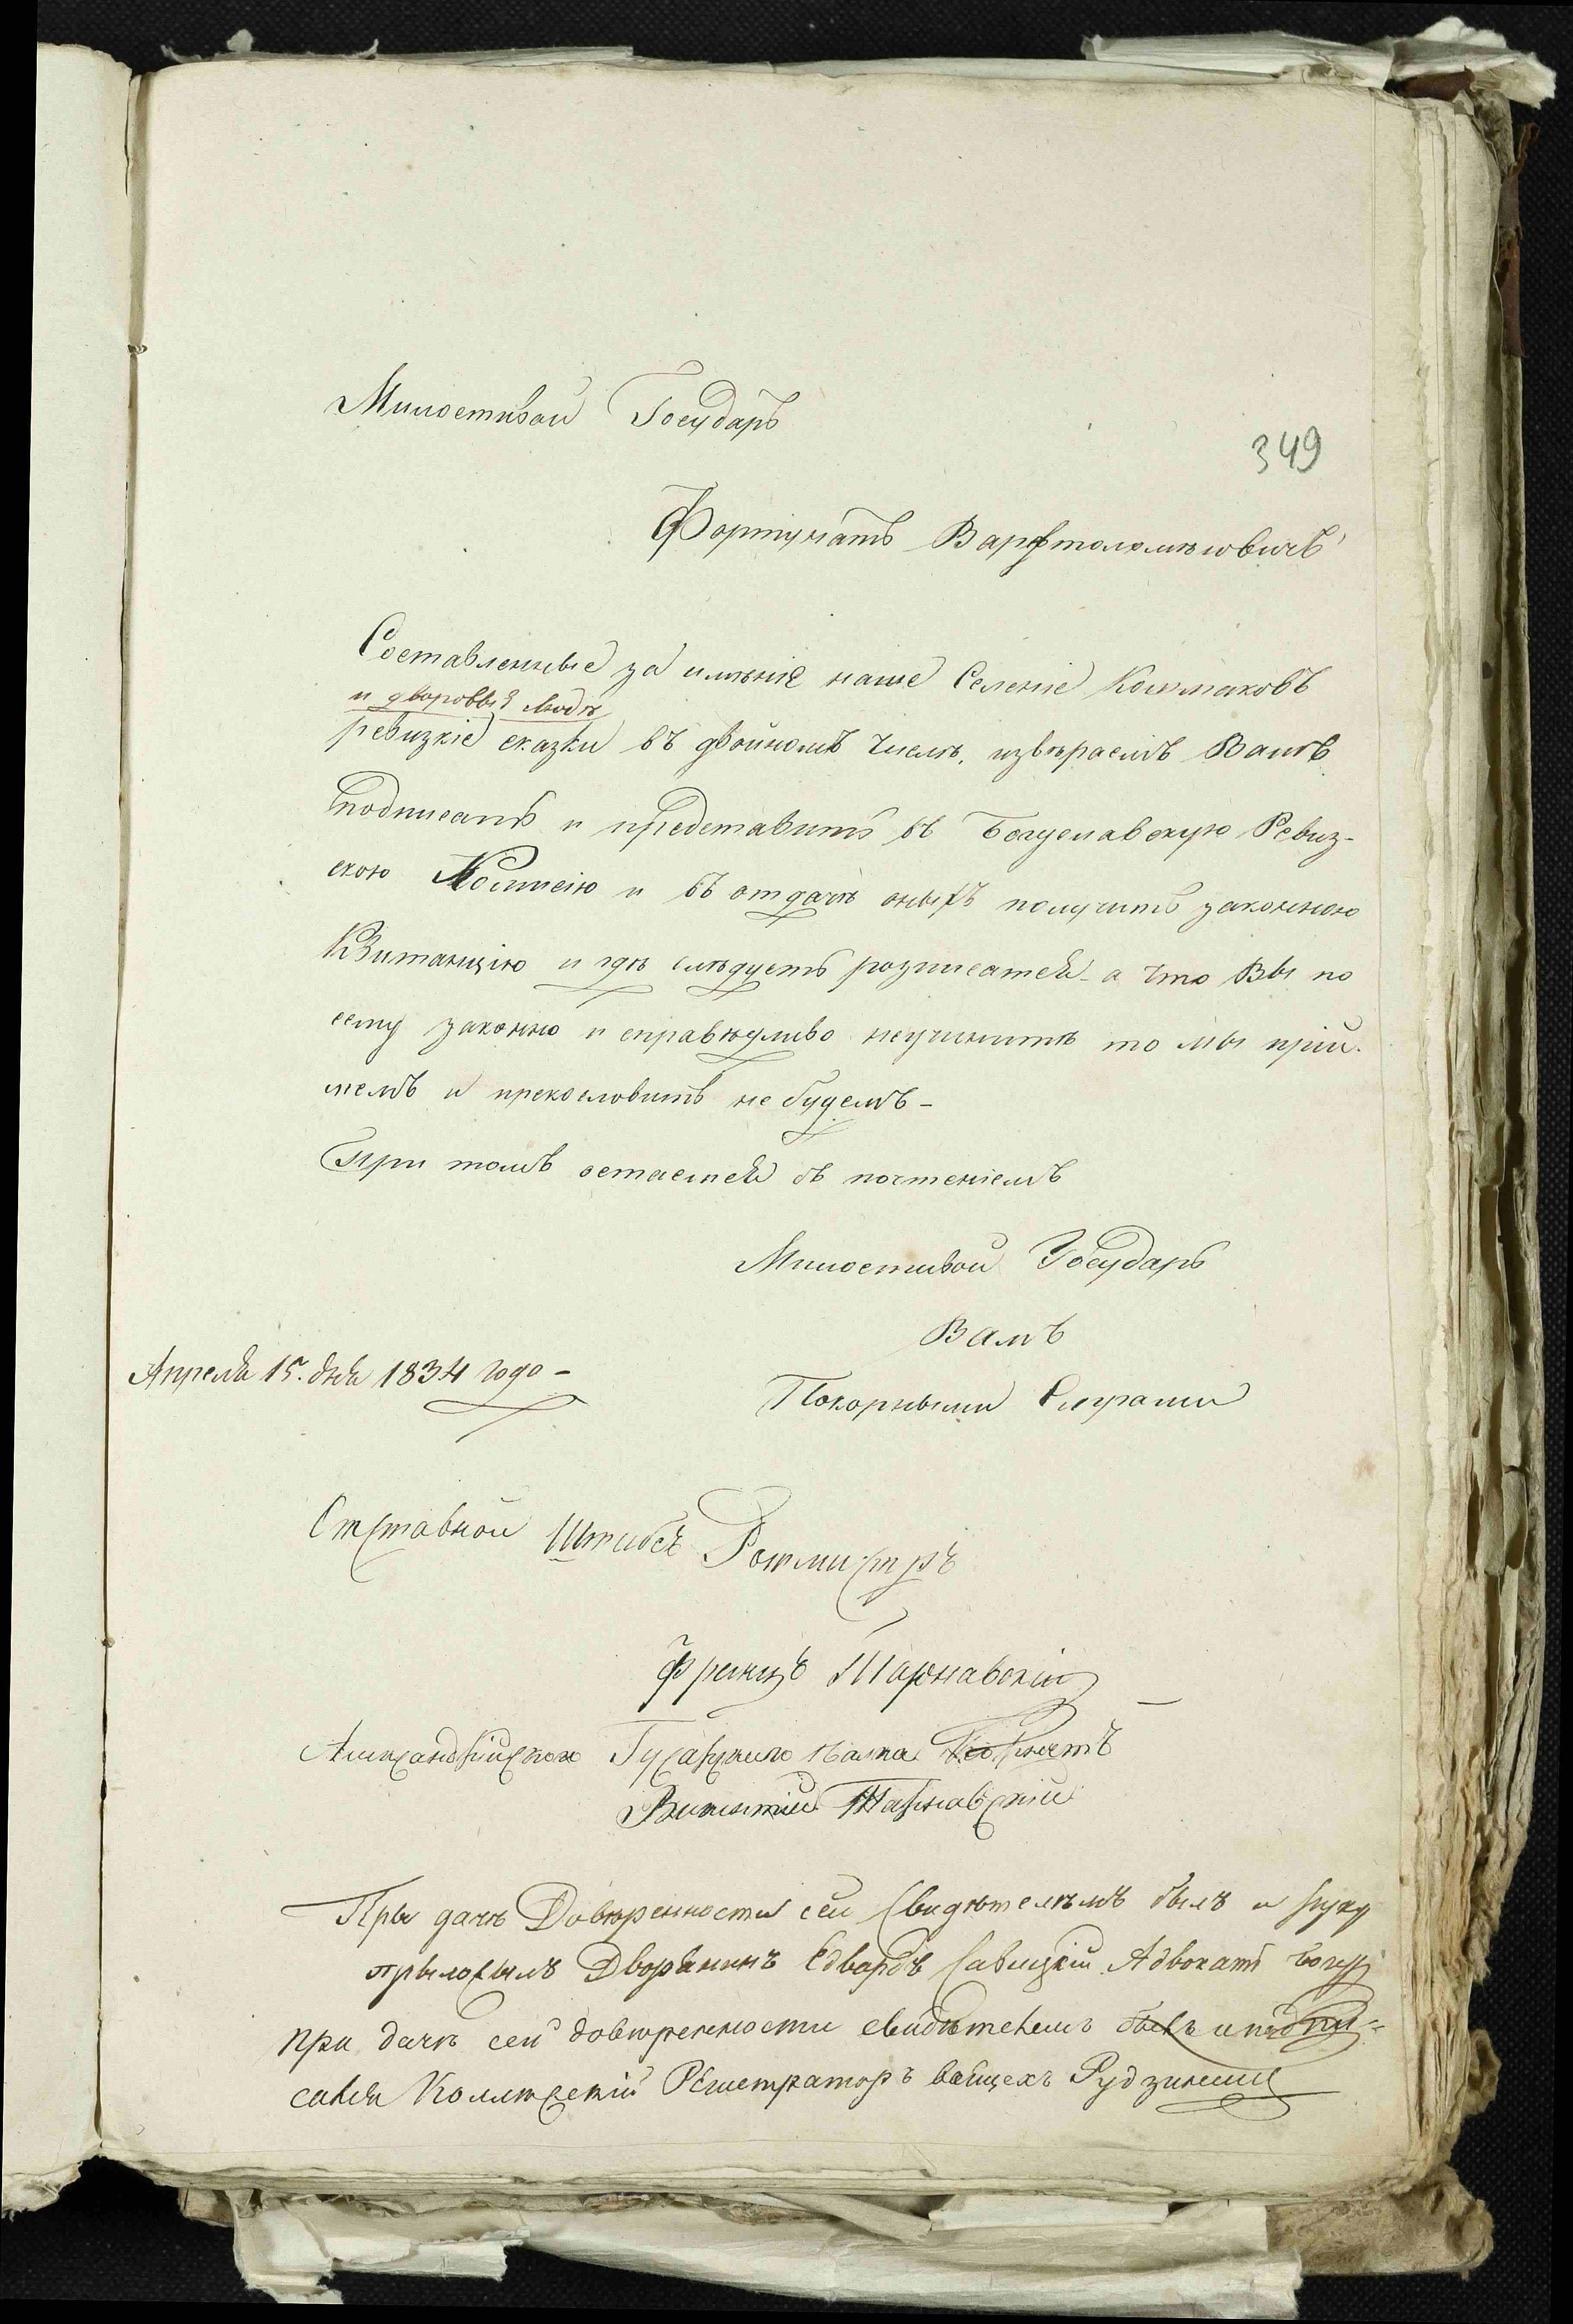 Милостивой Государь
349
Фортунатъ Варфтоломѣювичъ
Составленные за имѣніе наше Селеніе Колмаковъ
и дворовые люди
ревизкіе сказки въ двойномъ числѣ, извѣраемъ Вамъ
подписать и представить въ Богуславскую Ревиз-
скою Комисію и въ отдачѣ оныхъ получить законною
Квитанцію и гдѣ слѣдуетъ розписатся - а что Вы по
сему законно и справѣдливо неучините то мы прій-
мемъ и прекословить не будемъ -
При томъ остаемся съ почтеніемъ
Милостивой Государь
Вамъ
Апреля 15. дня 1834 года -
Покорными Слугами
Отставной Штабсъ Ротмистръ
Францъ Тарнавскій
Александрійского Гусарского полка Корнетъ
Викентій Тарнавскій
Пры дачѣ Довѣренности сей Свидѣтелѣмъ былъ и руку
прыложылъ Дворянинъ Едвардъ Савицкій Адвокатъ
при дачѣ сей довѣренности свидѣтелемъ былъ и подпи-
сался Коллежскій Регистраторъ Войцехъ Рудзинскій